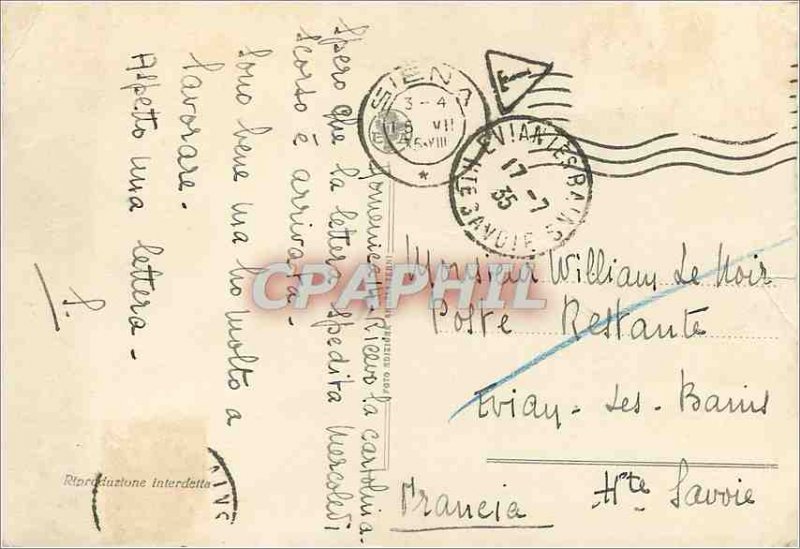 Domenica - Ricevo la cartolina.
Spero che la lettera spedita Mercoledì
scorso è arrivata -
Sono bene ma ho molto a
lavorare.
Aspetto una lettera -
S.
SIENA
3 - 4
VII
T
EVIAN LES BAINS
17 - 7
35
HTE SAVOIE
Monsieur William Le Noir
Poste Restante
Evian - Les - Bains
Hte Savoie
Francia
Riproduzione interdetta
CPAPHIL